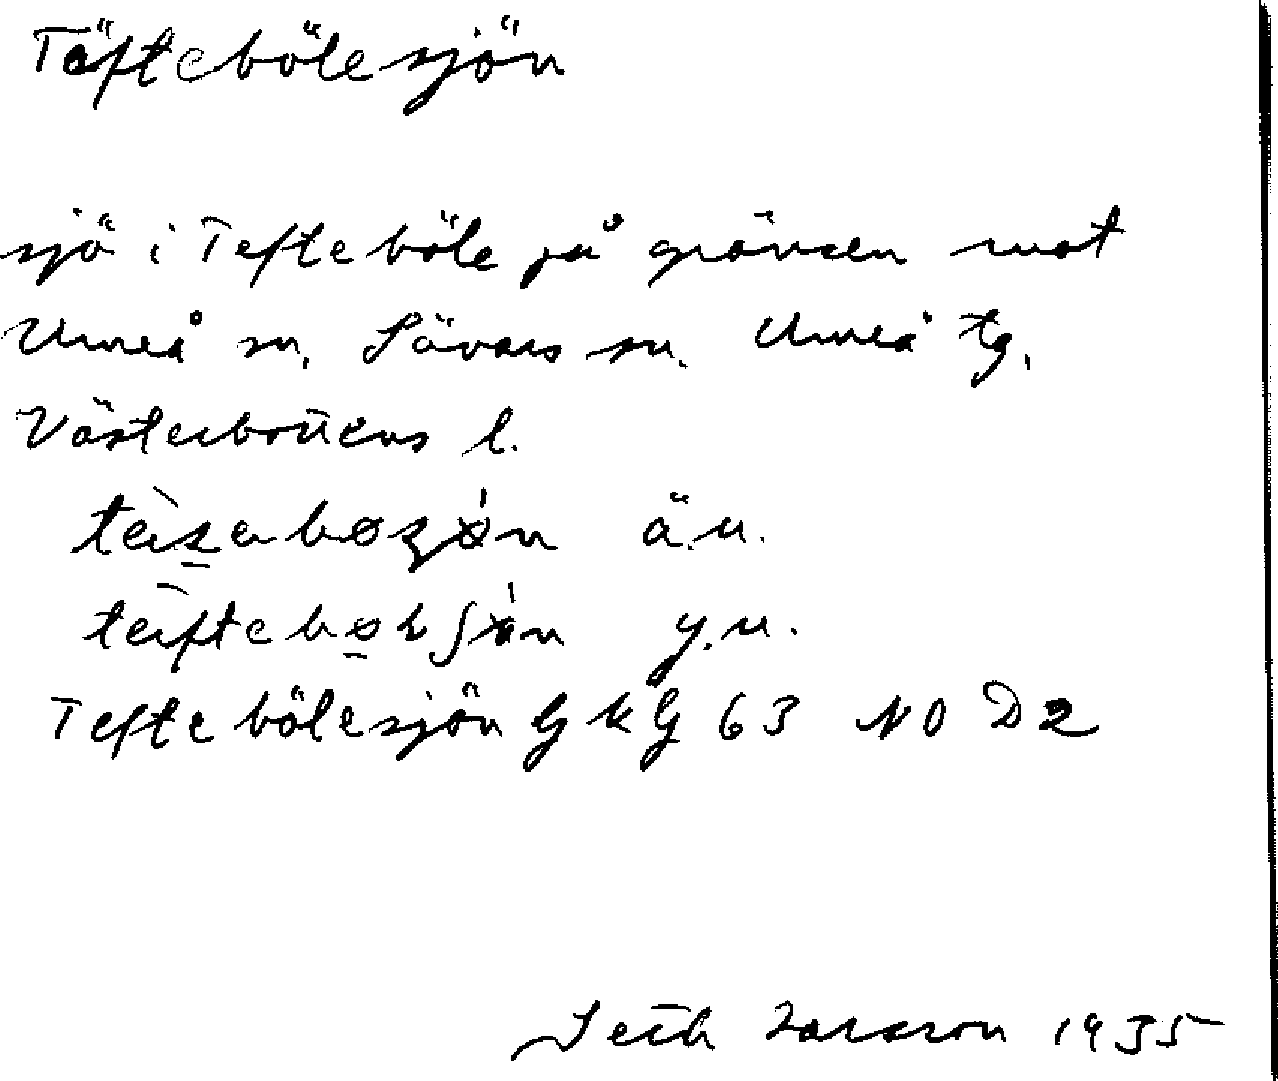 Täftebölesjön
sjö i Tefteböle på gränsen mot
Umeå sn, Sävars sn. Umeå tg,
Västerbottens l.
ä.u.
y.u.
Teftebölesjön GKG 63 NO D2
Seth Larsson 1935